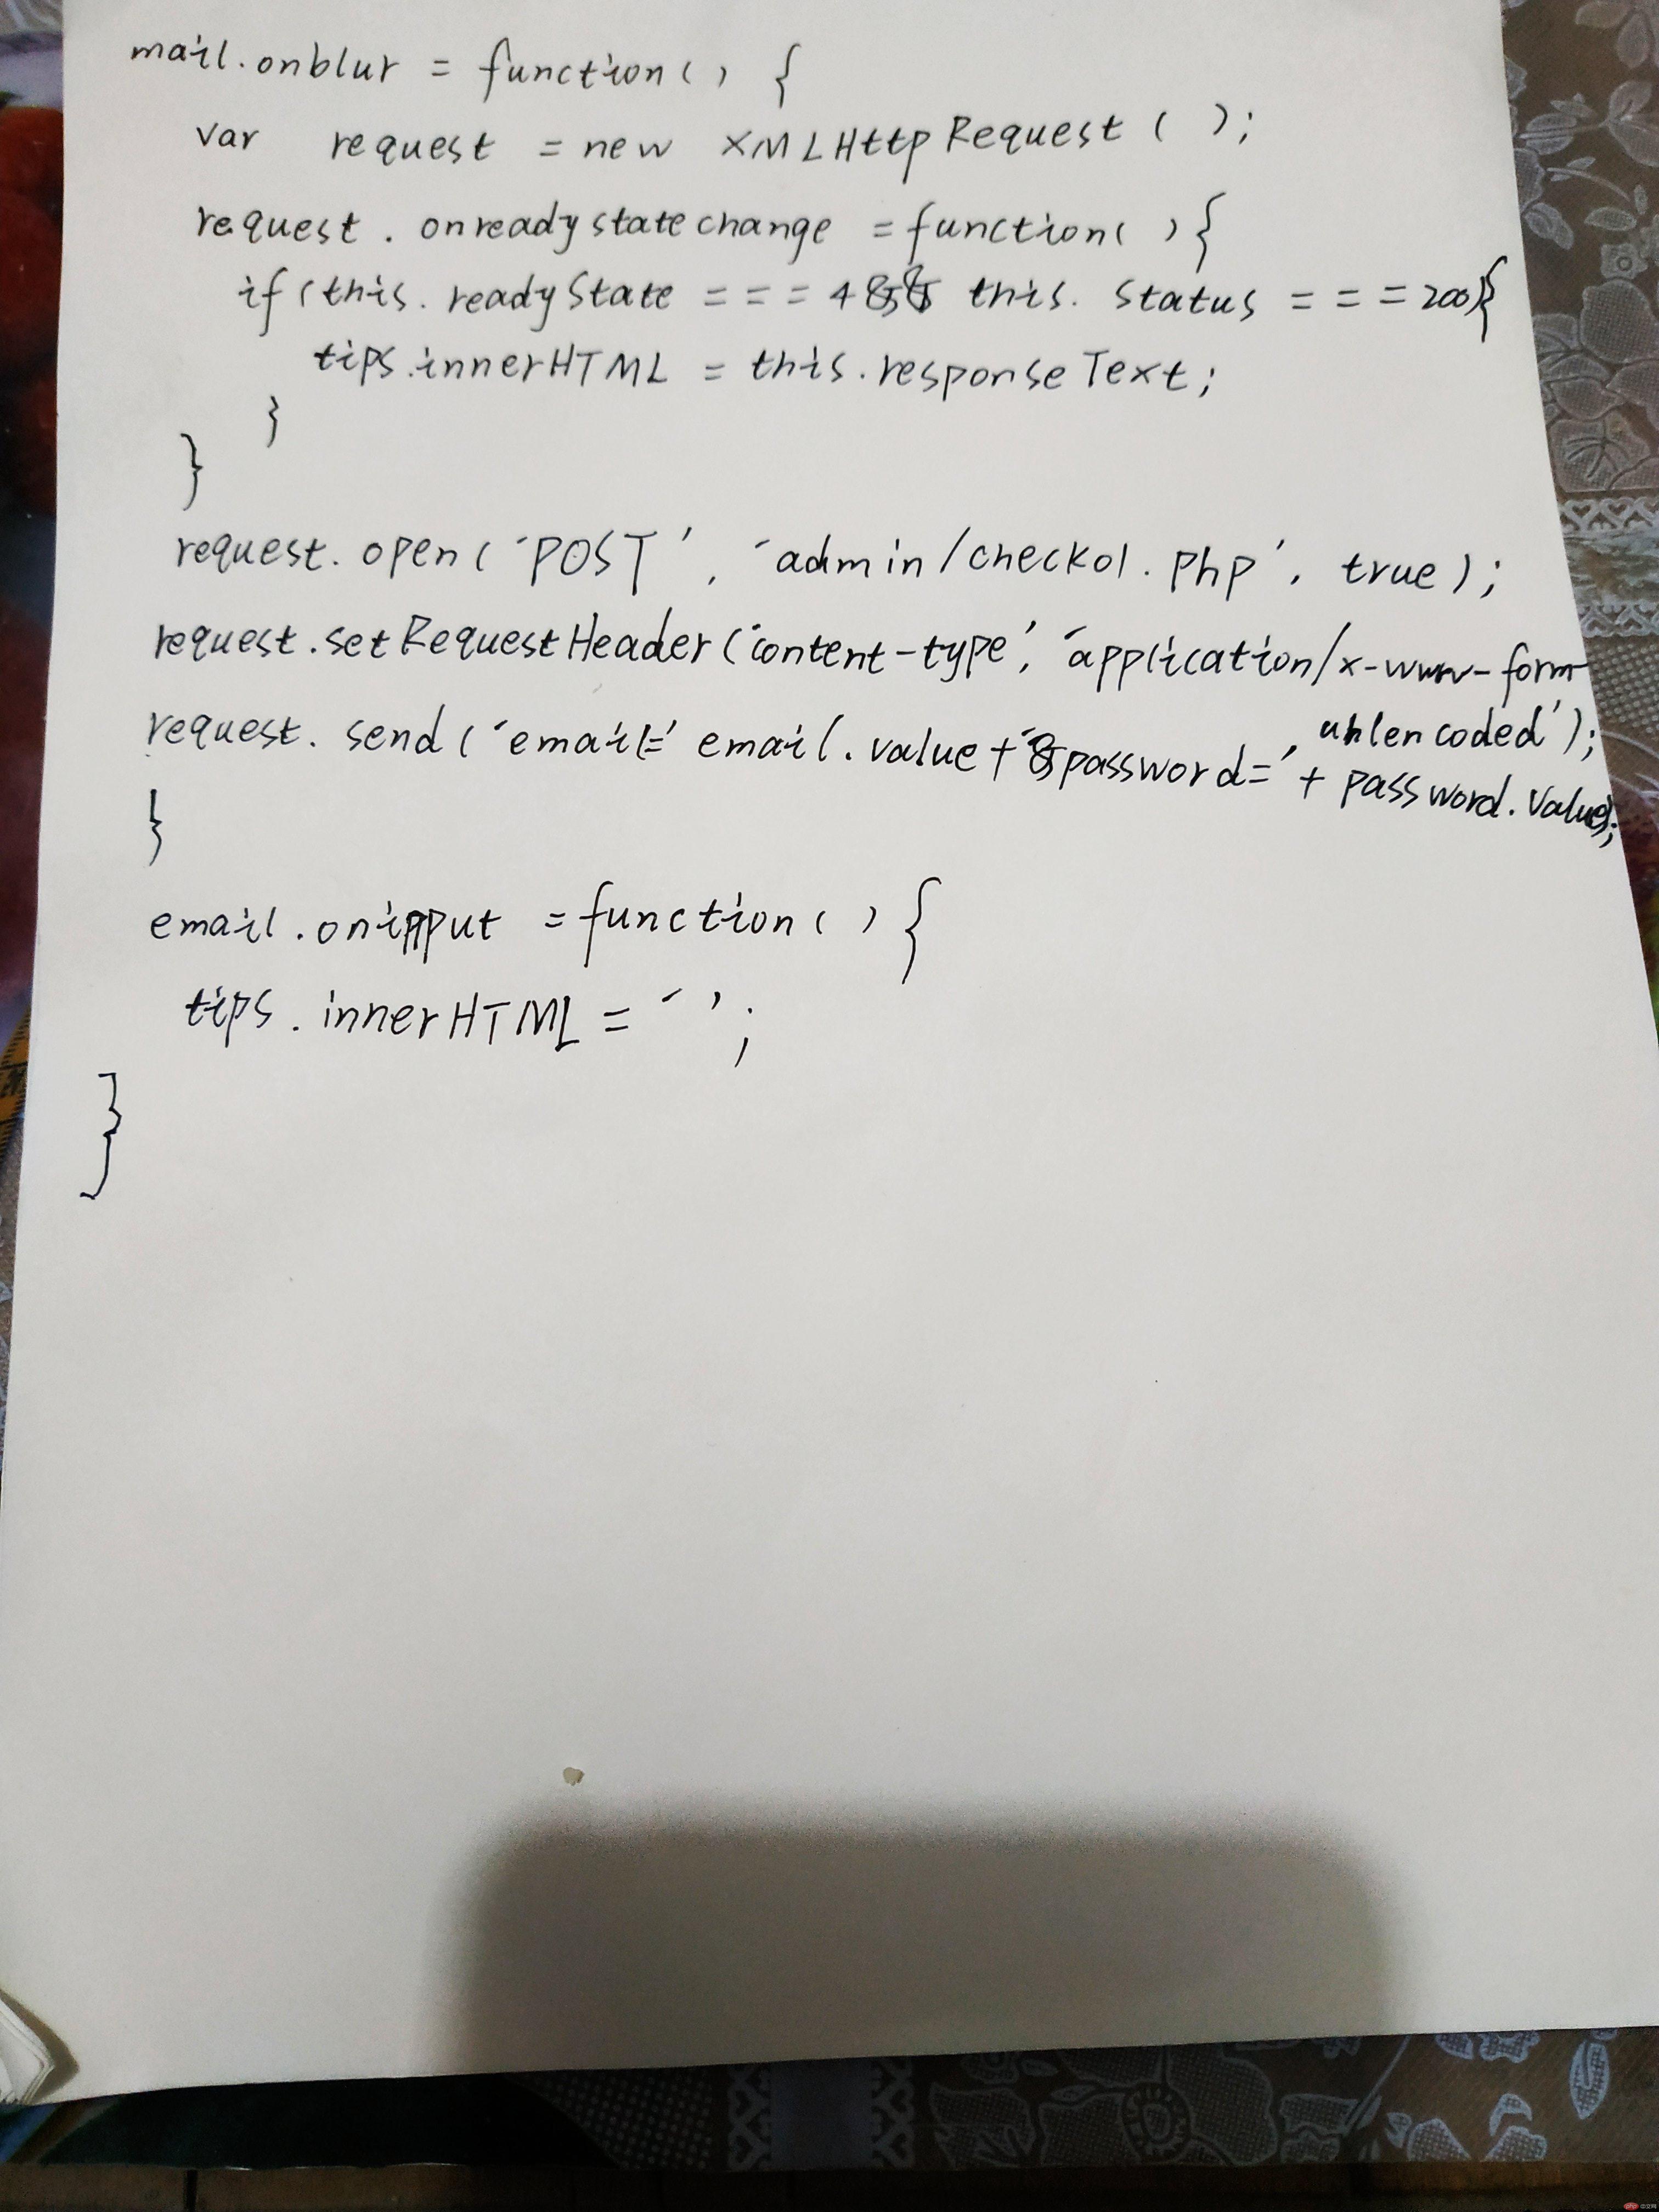 mail.onblur = function() {
var request = new XMLHttpRequest ( );
request . onreadystatechange = function( ) {
if (this. readyState === 4 && this. status === 200){
tips.innerHTML = this.responseText;
}
}
request. open ( 'POST', 'admin/check01.php', true);
request.setRequestHeader('content-type', 'application/x-www-form-
urlencoded');
request. send ( 'email=' email.value + '&password=' + password.value);
}
email.oninput = function( ) {
tips. innerHTML = ' ';
}
php 中文网